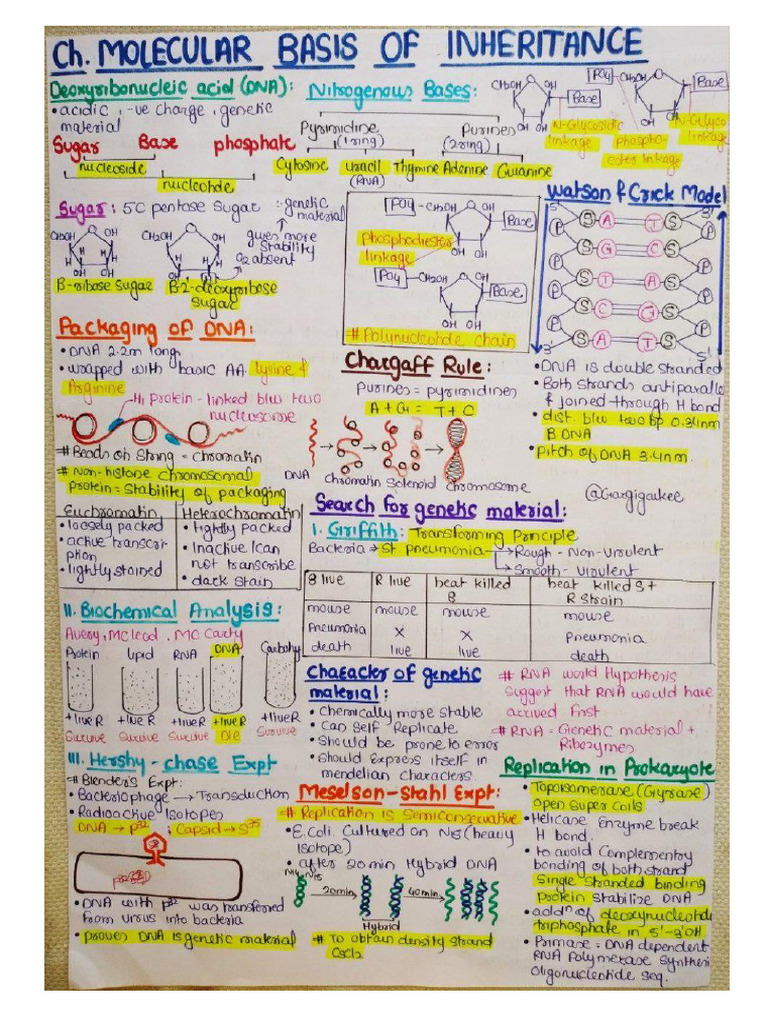 Ch. MOLECULAR BASIS OF INHERITANCE
Deoxyribonucleic acid (DNA):
• acidic, -ve charge, genetic
material
Sugar Base phosphate
nucleoside
nucleotide
Nitrogenous Bases:
Pyrimidine Purines
(1 ring) (2 ring)
Cytosine Uracil Thymine Adenine Guanine
(RNA)
CH2OH O OH
Base
OH OH
N-Glycosidic
linkage
PO4 CH2OH O
Base
OH OH
Phospho-
ester linkage
N-Glyco
linkage
Sugar: 5C pentose Sugar :- genetic
material
gives more
stability
O2 absent
CH2OH O OH
H H
H H
OH OH
B-ribose Sugar
CH2OH O OH
OH
B-2-deoxyribose
Sugar
PO4 - CH2OH O
Base
OH OH
Phosphodiester
linkage
PO4 - CH2OH O
Base
OH OH
# Polynucleotide chain
Watson & Crick Model
5' 3'
P S A T S P
P S G C S P
P S T A S P
P S C G S P
P S A T S P
3' 5'
• DNA is double stranded
• Both strands antiparalle
& joined through H bond
• dist. b/w two bp 0.34nm
B DNA
• Pitch of DNA 3.4nm.
@Gargigaukee
Packaging of DNA:
• DNA 2.2m long
• wrapped with basic AA lysine &
Arginine
H1 protein - linked b/w two
nucleosome
# Beads on String = chromatin
# Non-histone chromosomal
protein = Stability of packaging
Chargaff Rule:
Purines = pyrimidines
A + G = T + C
DNA Chromatin Solenoid Chromosome
Euchromatin Heterochromatin
• loosely packed
• active transcri-
ption
• lightly stained
• tightly packed
• Inactive / can
not transcribe
• dark stain
Search for genetic material:
I. Griffith: Transforming Principle
Bacteria → St. pneumonia → Rough - Non-Virulent
→ Smooth - Virulent
S live R live heat killed S heat killed S + R Strain
mouse mouse mouse mouse
Pneumonia X X Pneumonia
death live live death
II. Biochemical Analysis:
Avery, McLeod, Mc Carty
Protein lipid RNA DNA Carbohy
+live R +live R +live R +live R +live R
Survive Survive Survive Die Survive
Character of genetic
material:
• Chemically more stable
• Can self Replicate
• Should be prone to error
• Should Express itself in
mendelian characters
# RNA world Hypothesis
suggest that RNA would have
arrived first
# RNA = Genetic material +
Ribozymes
III. Hershy - chase Expt
# Blender's Expt:
• Bacteriophage → Transduction
• Radioactive Isotopes
DNA → P32 ; Capsid → S35
• DNA with P32 was transferred
from virus into bacteria
• proves DNA is genetic material
Meselson-Stahl Expt:
# Replication is Semiconservative
• E.Coli Cultured on N15 (heavy
Isotope)
• after 20 min Hybrid DNA
N14 N15
20min 40min
Hybrid
# To obtain density strand
CsCl2
Replication in Prokaryote
• Topoisomerase (Gyrase)
open Super Coils
• Helicase enzyme break
H bond.
• to avoid Complementry
bonding of both strand
Single Stranded binding
Protein stabilize DNA
• addn of deoxynucleotide
triphosphate in 5'-3'OH
• Primase = DNA dependent
RNA Polymerase Synthesi
Oligonucleotide Seq.